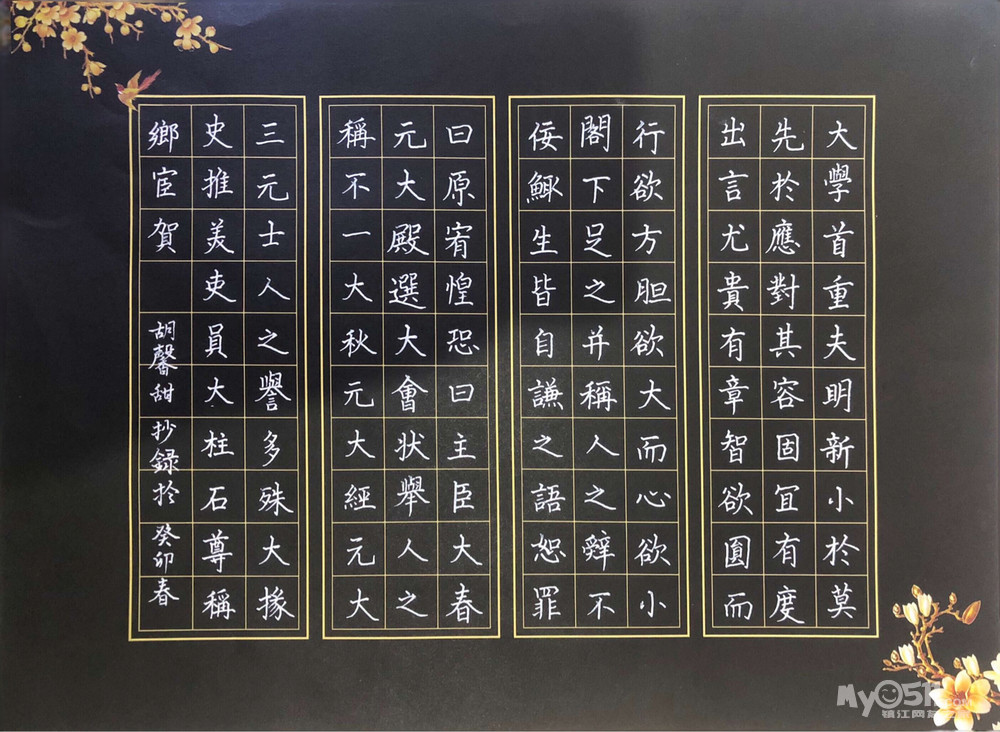 大學首重夫明新小於莫
先於應對其容固宜有度
出言尤貴有章智欲圓而
行欲方胆欲大而心欲小
閣下足之并稱人之辭不
佞鯫生皆自謙之語恕罪
曰原宥惶恐曰主臣大春
元大殿選大會狀舉人之
稱不一大秋元大經元大
三元士人之譽多殊大掾
史推美吏員大柱石尊稱
鄉宦賀
胡馨甜 抄録於 癸卯春
My0511.com
镇江网友